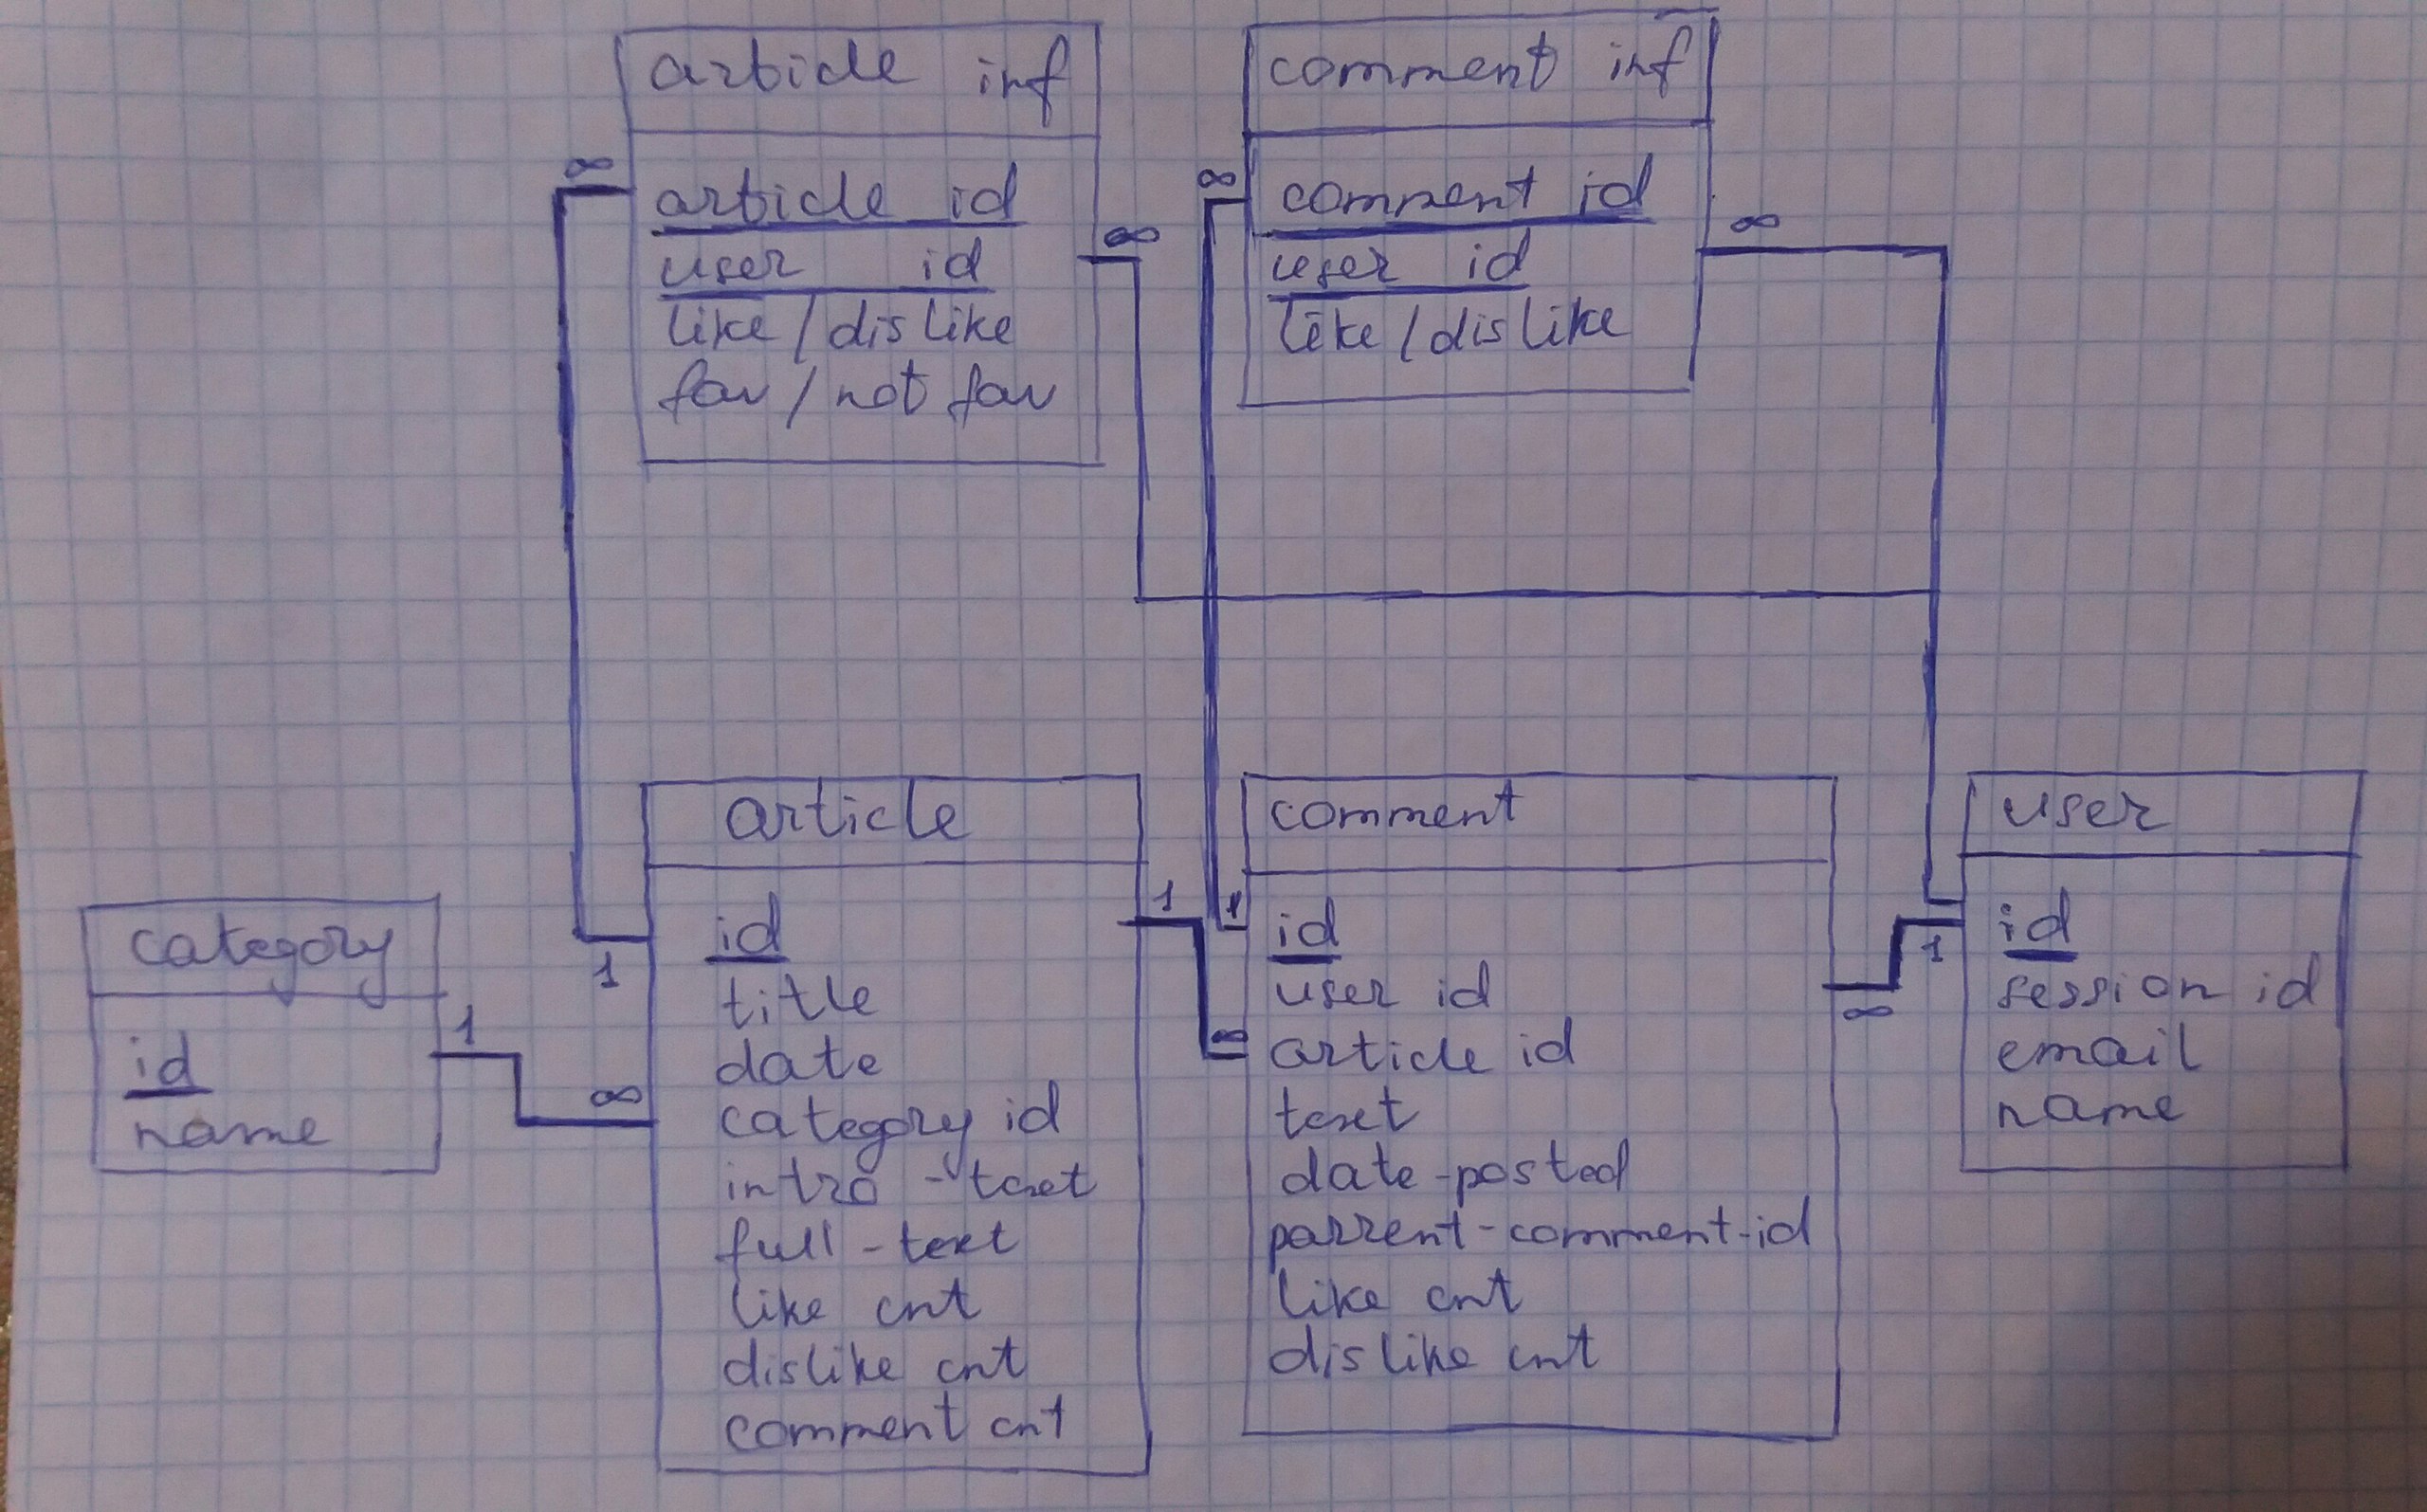 article inf
∞
article id
user id
∞
like / dislike
fav / not fav
comment inf
∞
comment id
user id
∞
like / dislike
category
1
id
name
∞
article
1
id
1
title
date
category id
intro - text
full - text
like cnt
dislike cnt
comment cnt
comment
1
id
user id
∞
article id
∞
text
date - posted
parrent - comment - id
like cnt
dislike cnt
user
id
1
session id
email
name